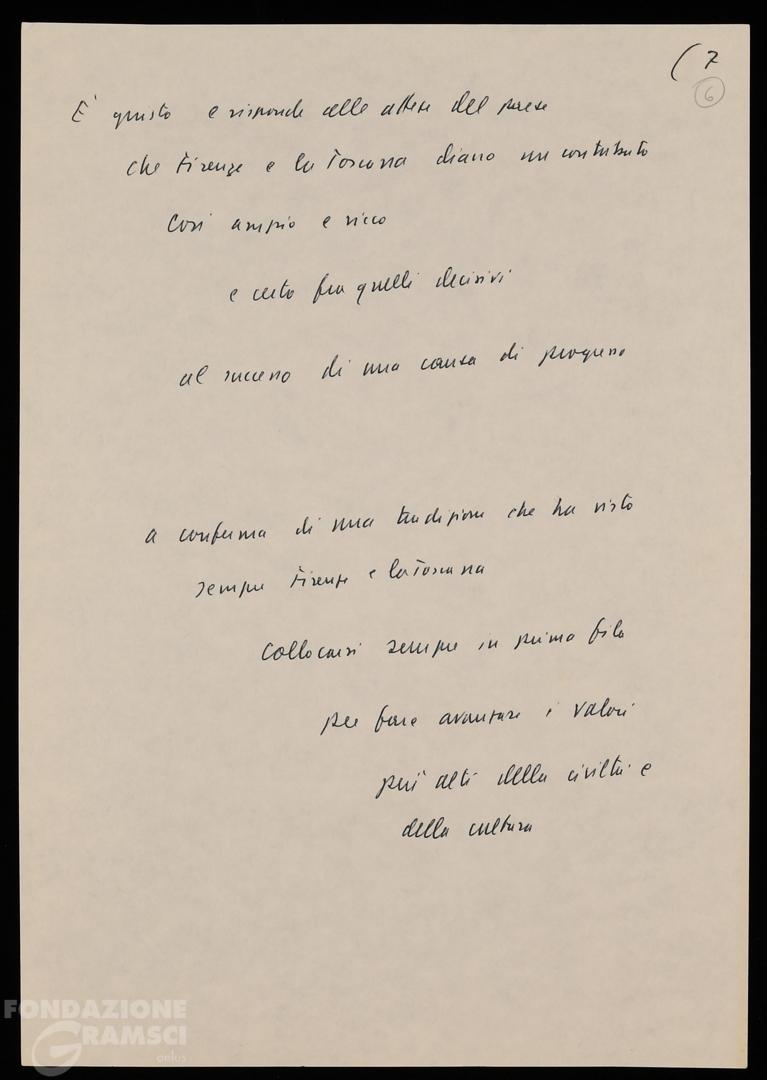 ( 7
6
E' giusto e risponde alle attese del paese
che Firenze e la Toscana diano un contributo
così ampio e ricco
e certo fra quelli decisivi
al successo di una causa di progresso
a conferma di una tradizione che ha visto
sempre Firenze e la Toscana
collocarsi sempre in prima fila
per fare avanzare i valori
più alti della civiltà e
della cultura
FONDAZIONE
GRAMSCI
onlus